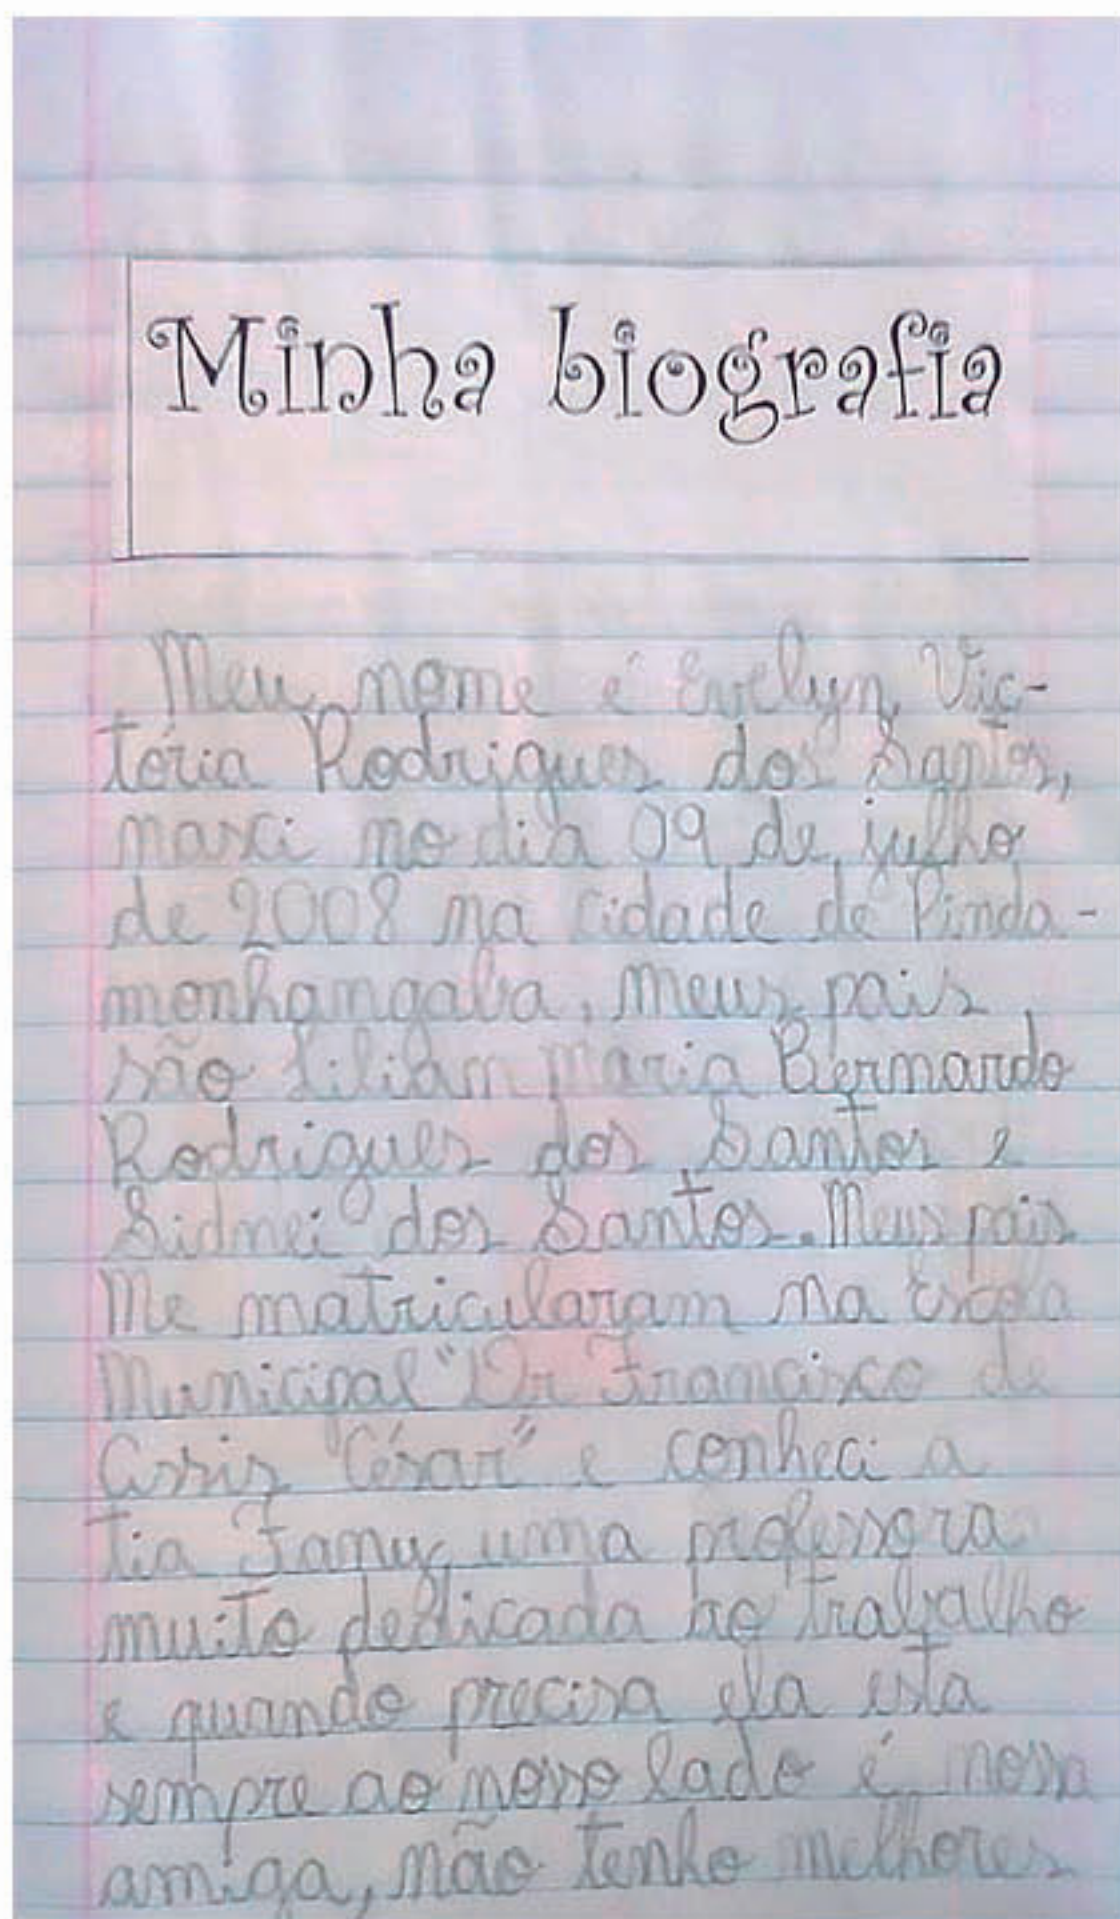 Minha biografia
Meu nome é Evelyn Vic-
tória Rodrigues dos Santos,
nasci no dia 09 de julho
de 2008 na cidade de Pinda-
monhangaba, meus pais
são Lilian Maria Bernardo
Rodrigues dos Santos e
Sidnei dos Santos. Meus pais
me matricularam na Escola
Municipal "Dr Francisco de
Assis César" e conheci a
tia Fany, uma professora
muito dedicada ao trabalho
e quando precisa ela esta
sempre ao nosso lado é nossa
amiga, não tenho melhores